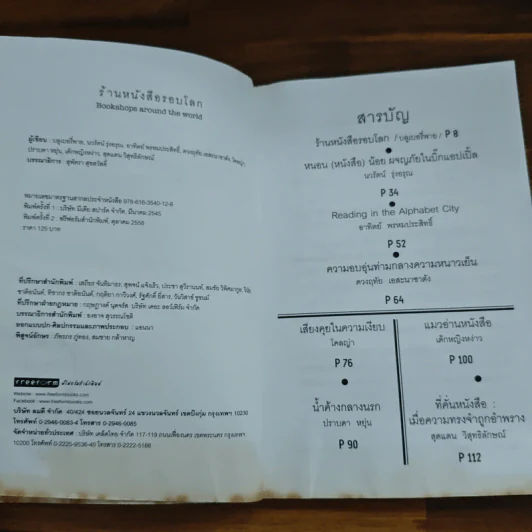 ร้านหนังสือรอบโลก
Bookshops around the world
ผู้เขียน : บลูเบอรี่พาย, นวรัตน์ รุ่งอรุณ, อาทิตย์ พรหมประสิทธิ์, ดวงฤทัย เอสะนาชาตัง, โคลญ่า,
ปราบดา หยุ่น, เด็กหญิงเหง่า, สุดแดน วิสุทธิลักษณ์
บรรณาธิการ : สุพัตรา สุขสวัสดิ์
หมายเลขมาตรฐานสากลประจำหนังสือ 978-616-3540-12-6
พิมพ์ครั้งที่ 1 : บริษัท มีเดีย สปาร์ค จำกัด, มีนาคม 2545
พิมพ์ครั้งที่ 2 : ฟรีฟอร์มสำนักพิมพ์, ตุลาคม 2556
ราคา 125 บาท
ที่ปรึกษาสำนักพิมพ์ : เสถียร จันทิมาธร, สุพจน์ แจ้งเร็ว, ประชา สุวีรานนท์,
ที่ปรึกษาฝ่ายกฎหมาย :
บรรณาธิการสำนักพิมพ์ :
ออกแบบปก-ศิลปกรรมและภาพประกอบ : แอนนา
พิสูจน์อักษร : ภัทรภร ภู่ทอง, สมชาย กล้าหาญ
freeform ฟรีฟอร์มสำนักพิมพ์
Website : www.freeformbooks.com
Facebook : www.freeformbooks.com
บริษัท ลมดี จำกัด 40/424 ซอยนวลจันทร์ 24 แขวงนวลจันทร์ เขตบึงกุ่ม กรุงเทพฯ 10230
โทรศัพท์ 0-2946-0083-4 โทรสาร 0-2946-0085
จัดจำหน่ายทั่วประเทศ : บริษัท เคล็ดไทย จำกัด 117-119 ถนนเฟื่องนคร เขตพระนคร กรุงเทพฯ
10200 โทรศัพท์ 0-2225-9536-40 โทรสาร 0-2222-5188
สารบัญ
ร้านหนังสือรอบโลก / บลูเบอรี่พาย / P 8
หนอน (หนังสือ) น้อย ผจญภัยในบิ๊กแอปเปิ้ล
นวรัตน์ รุ่งอรุณ
P 34
Reading in the Alphabet City
อาทิตย์ พรหมประสิทธิ์
P 52
ความอบอุ่นท่ามกลางความหนาวเย็น
ดวงฤทัย เอสะนาชาตัง
P 64
เสียงคุยในความเงียบ
โคลญ่า
P 76
น้ำค้างกลางนรก
ปราบดา หยุ่น
P 90
แมวอ่านหนังสือ
เด็กหญิงเหง่า
P 100
ที่คั่นหนังสือ :
เมื่อความทรงจำถูกอำพราง
สุดแดน วิสุทธิลักษณ์
P 112